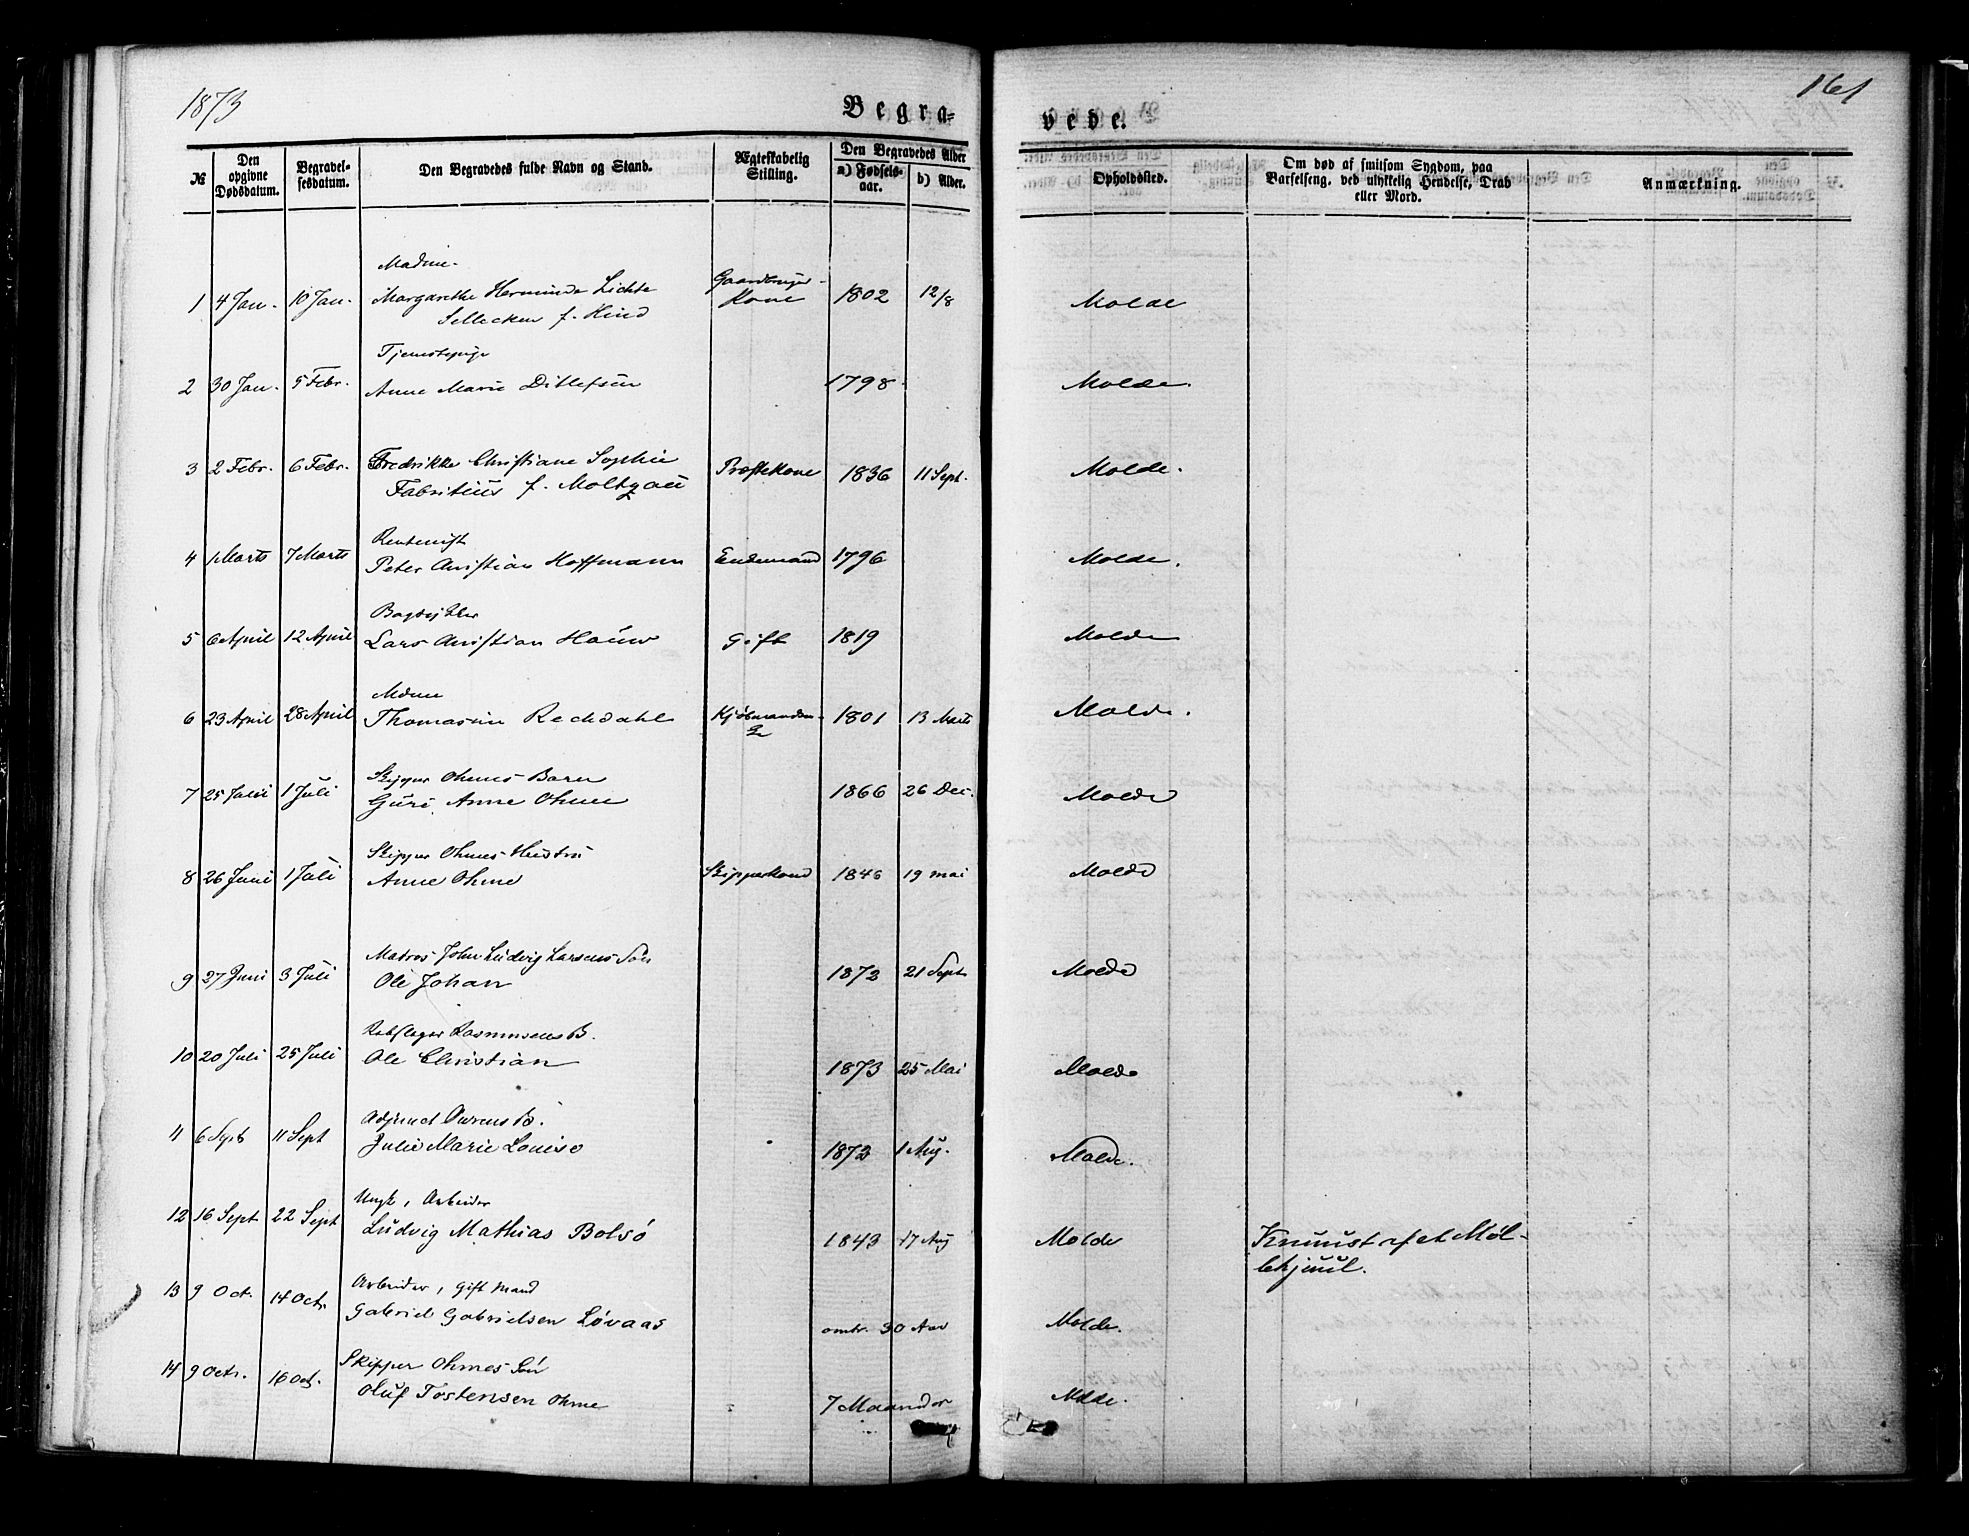 1873
161
Begra=
vede.
№
Den opgivne Dødsdatum.
Begravel-sesdatum.
Den Begravedes fulde Navn og Stand.
Ægteskabelig Stilling.
Den Begravedes Alder
a) Fødsels-aar.
b) Alder.
Opholdssted.
Om død af smitsom Sygdom, paa Barselseng, ved ulykkelig Hendelse, Drab eller Mord.
Anmærkning.
Madme.
1 4 Jan. 10 Jan. Margarethe Herminde Lichte Kone 1802 12/8 Molde
f. Hind
Tjenestepige
2 30 Jan. 5 Febr. Anne Marie Ditlefsen 1798. Molde.
3 2 Febr. 6 Febr. Fredrikke Christiane Sophie Præstekone 1836 11 Sept. Molde.
Fabritius f. Moltzau
Rentenist
4 1 Marts 7 Marts Peter Christian Hoffmann Enkemand 1796 Molde.
5 6 April 12 April Lars Christian Gift 1819 Molde
Mdme
6 23 April 28 April Thomasine Rechdahl Kjøbmanden- 1801 13 Marts Molde.
Skipper Ohmes Barn
7 25 Juni 1 Juli Guri Anne Ohme 1866 26 Dec. Molde
Skipper Ohmes Hustru
8 26 Juni 1 Juli Anne Ohme Skipperkone 1846 19 mai Molde
Matros John Ludvig Larsens Søn
9 27 Juni 3 Juli Ole Johan 1872 21 Sept Molde
Rebslager Rasmussens B.
10 20 Juli 25 Juli Ole Christian 1873 25 Mai Molde
Adjunct B.
11 6 Sept 11 Sept Julie Marie Louise 1872 1 Aug. Molde.
Ungk, Arbeider
12 16 Sept 22 Sept Ludvig Mathias Bolsø 1843 17 Aug Molde Knuust af et Møl-
lehjuul.
Arbeider, gift Mand
13 9 Oct. 14 Octr. Gabriel Gabrielsen Løvaas omtr. 30 Aar Molde.
Skipper Ohmes Søn
14 9 Octr. 16 Oct. Oluf Tostensen Ohme 7 Maaneder Molde.